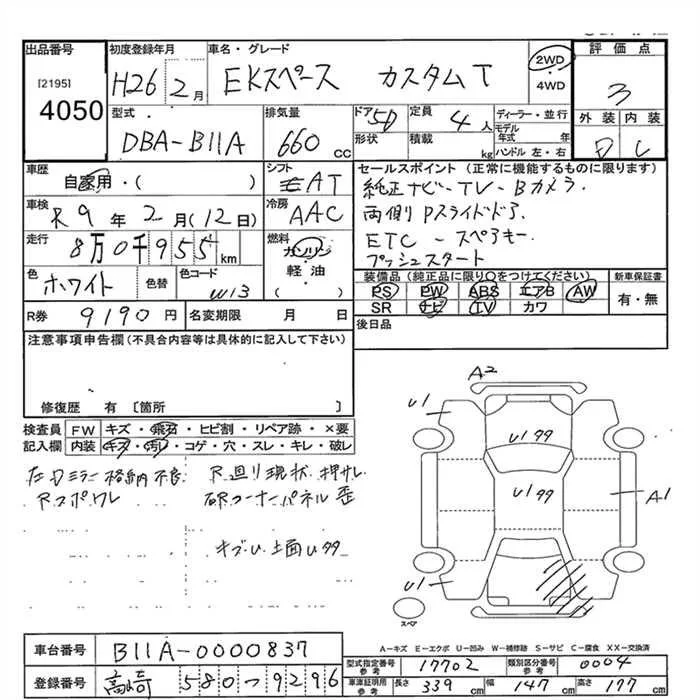 出品番号 初度登録年月 車名・グレード 2WD・4WD 評価点
[2195] H26年 2月 EKスペース カスタムT 3
4050
型式 排気量 ドア 5D 定員 4人 ディーラー・並行 外装 内装
DBA-B11A 660cc 形状 積載 kg モデル年式 年 D C
ハンドル 左・右
車歴 シフト セールスポイント(正常に機能するものに限ります)
自家用・( ) AT 純正ナビ-TV-Bカメラ.
車検 冷房 両側Pスライドドア.
R9年2月(12日) AAC ETC-スペアキー.
走行 燃料 プッシュスタート
8万0千955km ガソリン・軽油( )
色 色替 色コード 装備品(純正品に限り○をつけてください) 新車保証書
ホワイト W13 PS PW ABS エアB AW 有・無
SR ナビ TV カワ
R券 9190円 名変期限 月 日 後日品
注意事項申告欄(不具合内容等は具体的に記入して下さい)
修復歴 有〔箇所 〕
検査員 FW キズ・飛石・ヒビ割・リペア跡・×要
記入欄 内装 キズ・汚レ・コゲ・穴・スレ・キレ・破レ
左Dミラー格納不良 R廻り現状 押サレ
Rスポワレ 右Rコーナーパネル歪
キズU.土面Uタタ
A2
U1
U1タタ
U1タタ
A1
U1
スペア
A-キズ E-エクボ U-凹み W-補修跡 S-サビ C-腐食 XX-交換済
車台番号 B11A-0000837
型式指定番号参考 17702 類別区分番号参考 0004
登録番号 高崎 580つ9296
車庫証明用参考 長さ 339cm 幅 147cm 高さ 177cm